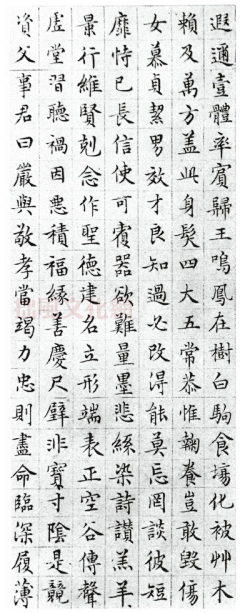 遐邇壹體率賓歸王鳴鳳在樹白駒食場化被艸木
賴及萬方蓋此身髮四大五常恭惟鞠養豈敢毀傷
女慕貞潔男效才良知過必改得能莫忘罔談彼短
靡恃己長信使可覆器欲難量墨悲絲染詩讚羔羊
景行維賢剋念作聖德建名立形端表正空谷傳聲
虛堂習聽禍因惡積福緣善慶尺璧非寶寸陰是競
資父事君曰嚴與敬孝當竭力忠則盡命臨深履薄